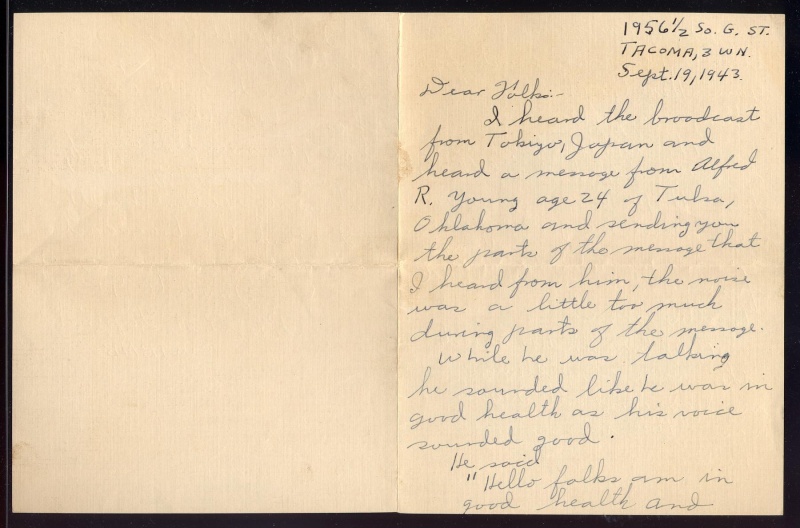 1956½ So. G. ST.
TACOMA, 3 WN.
Sept. 19, 1943.
Dear Folks:-
I heard the broadcast
from Tokiyo, Japan and
heard a message from Alfred
R. Young age 24 of Tulsa,
Oklahoma and sending you
the parts of the message that
I heard from him, the noise
was a little too much
during parts of the message.
While he was talking
he sounded like he was in
good health as his voice
sounded good.
He said
"Hello folks am in
good health and